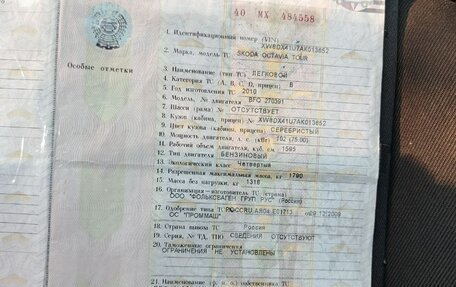 40 МХ 484558
Особые отметки
1. Идентификационный номер (VIN) XW8DX41U7AK013652
2. Марка, модель ТС SKODA OCTAVIA TOUR
3. Наименование (тип ТС) ЛЕГКОВОЙ
4. Категория ТС (А, В, С, D, прицеп) В
5. Год изготовления ТС 2010
6. Модель, № двигателя BFQ 270391
7. Шасси (рама) № ОТСУТСТВУЕТ
8. Кузов (кабина, прицеп) № XW8DX41U7AK013652
9. Цвет кузова (кабины, прицепа) СЕРЕБРИСТЫЙ
10. Мощность двигателя, л. с. (кВт) 102 (75.00)
11. Рабочий объем двигателя, куб. см 1595
12. Тип двигателя БЕНЗИНОВЫЙ
13. Экологический класс Четвертый
14. Разрешенная максимальная масса, кг 1790
15. Масса без нагрузки, кг 1316
16. Организация—изготовитель ТС (страна)
ООО "ФОЛЬКСВАГЕН ГРУП РУС" (Россия)
17. Одобрение типа ТС № РОСС RU.
.12.2009
ОС "ПРОММАШ"
18. Страна вывоза ТС Россия
19. Серия, № ТД, ТПО СВЕДЕНИЯ ОТСУТСТВУЮТ
20. Таможенные ограничения
ОГРАНИЧЕНИЯ НЕ УСТАНОВЛЕНЫ
21. Наименование (ф. и. о.) собственника ТС